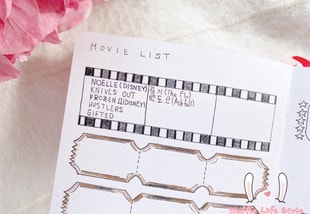 MOVIE LIST
NOELLE (DISNEY)
KNIVES OUT
FROZEN II (DISNEY)
HUSTLERS
GIFTED
감기 (The Flu)
(Ashfall)